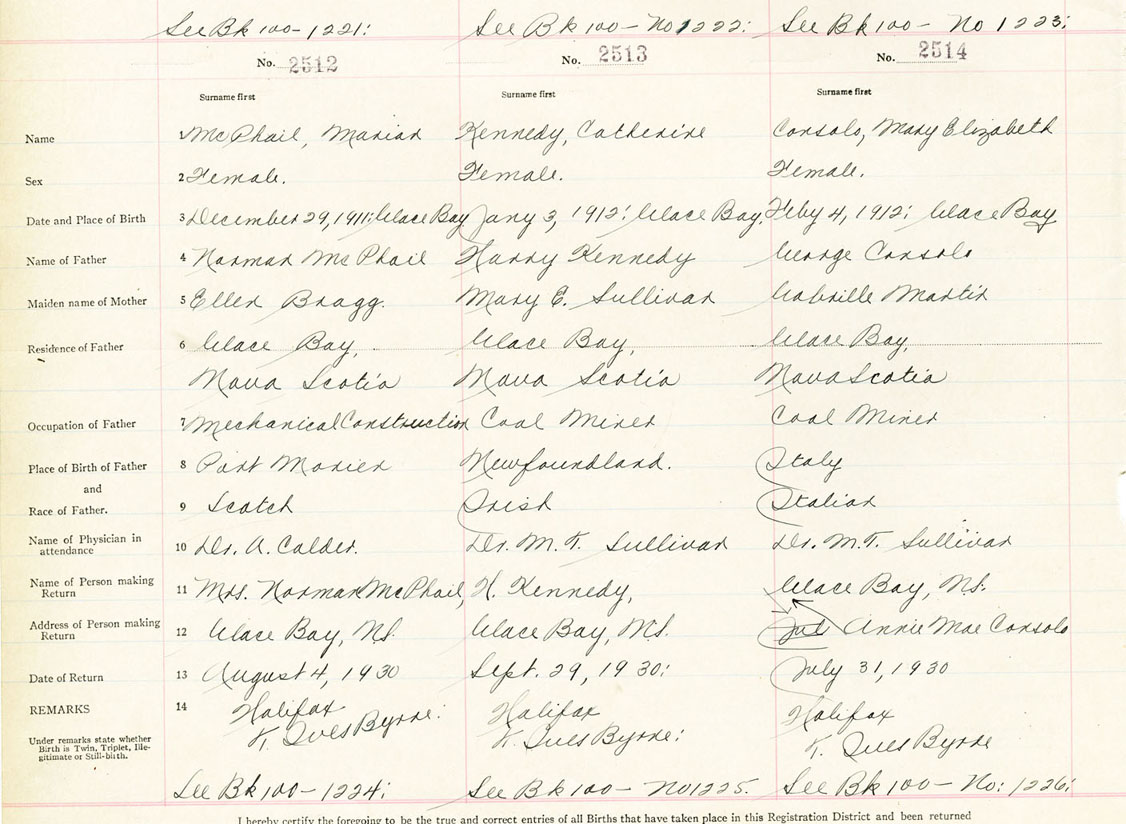 See Bk 100 - 1221: See Bk 100 - No 1222: See Bk 100 - No 1223:
No. 2512 No. 2513 No. 2514
Surname first Surname first Surname first
Name 1 McPhail, Marian Kennedy, Catherine Consolo, Mary Elizabeth
Sex 2 Female. Female. Female.
Date and Place of Birth 3 December 29, 1911: Glace Bay Jany 3, 1912: Glace Bay, Feby 4, 1912: Glace Bay
Name of Father 4 Norman McPhail Harry Kennedy George Consolo
Maiden name of Mother 5 Ellen Bragg. Mary E. Sullivan Gabrille Martin
Residence of Father 6 Glace Bay, Glace Bay, Glace Bay,
Nova Scotia Nova Scotia Nova Scotia
Occupation of Father 7 Mechanical Construction Coal Miner Coal Miner
Place of Birth of Father 8 Port Morien Newfoundland. Italy
and
Race of Father. 9 Scotch Irish Italian
Name of Physician in attendance 10 Dr. A. Calder. Dr. M.T. Sullivan Dr. M.T. Sullivan
Name of Person making Return 11 Mrs. Norman McPhail, H. Kennedy, Glace Bay, NS.
Address of Person making Return 12 Glace Bay, NS. Glace Bay, NS. Annie Mae Consolo
Date of Return 13 August 4, 1930 Sept. 29, 1930: July 31, 1930
REMARKS 14 Halifax Halifax Halifax
Under remarks state whether Birth is Twin, Triplet, Illegitimate or Still-birth. K. Ives Byrne: K. Ives Byrne: K. Ives Byrne
See Bk 100 - 1224: See Bk 100 - No 1225. See Bk 100 - No: 1226:
I hereby certify the foregoing to be the true and correct entries of all Births that have taken place in this Registration District and been returned